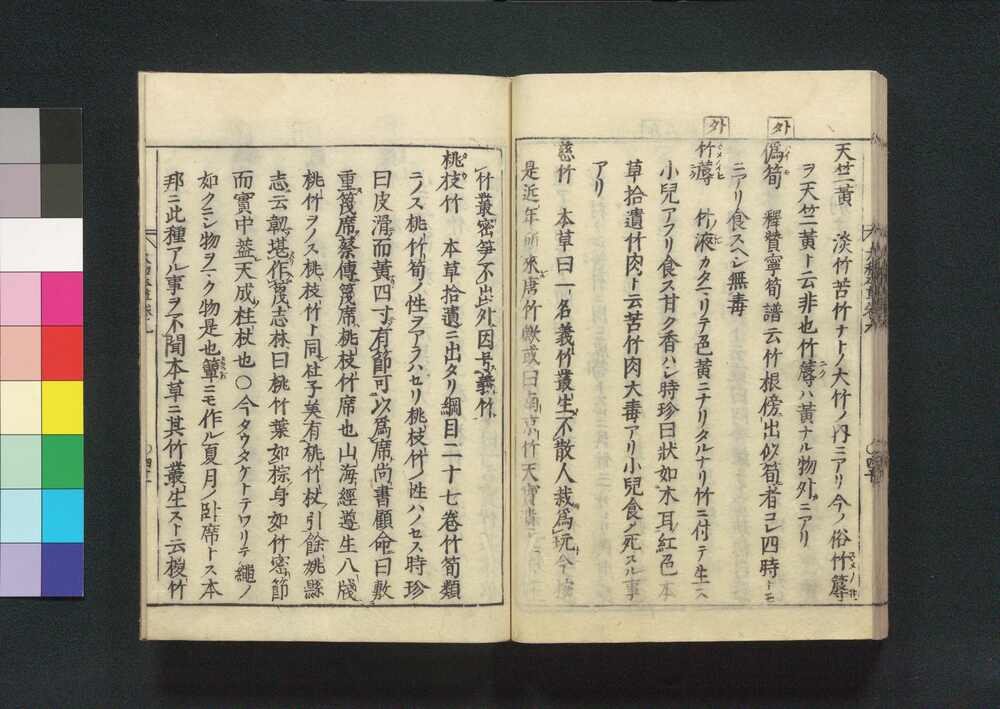 天竺黄 淡竹苦竹ナトノ大竹ノ内ニアリ今ノ俗竹蓐
ヲ天竺黄ト云非也竹蓐ハ黄ナル物外ニアリ
外
偽筍 釋賛寧筍譜云竹根傍出似筍者コレ四時トモ
ニアリ食スヘシ無毒
外
竹蓐 竹ノ液カタマリテ色黄ニナリタルナリ竹ニ付テ生ス
小兒アフリ食ス甘ク香ハシ時珍曰状如木耳紅色本
草拾遺竹肉ト云苦竹肉大毒アリ小兒食ノ死スル事
アリ
慈竹 本草曰一名義竹叢生不散人栽為玩今按
是近年所來唐竹歟或曰南京竹天寶
竹叢密笋不出外因号義竹
桃枝竹 本草拾遺ニ出タリ綱目二十七巻竹筍類
ニノス桃竹筍ノ性ヲアラハセリ桃枝竹ノ性ハノセス時珍
曰皮滑而黄四寸有節可以為席尚書顧命曰敷
重篾席蔡傳篾席桃枝竹席也山海經遵生八牋
桃竹ヲノス桃枝竹ト同杜子美有桃竹杖引餘姚縣
志云韌堪作篾志林曰桃竹葉如椶身如竹密節
而實中葢天成柱杖也○今タウタケトテワリテ繩ノ
如クニシ物ヲマク物是也簟ニモ作ル夏月ノ卧席トス本
邦ニ此種アル事ヲ不聞本草ニ其竹叢生スト云椶竹